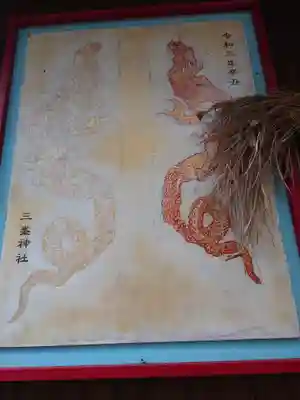 令和三年辛丑
三峯神社